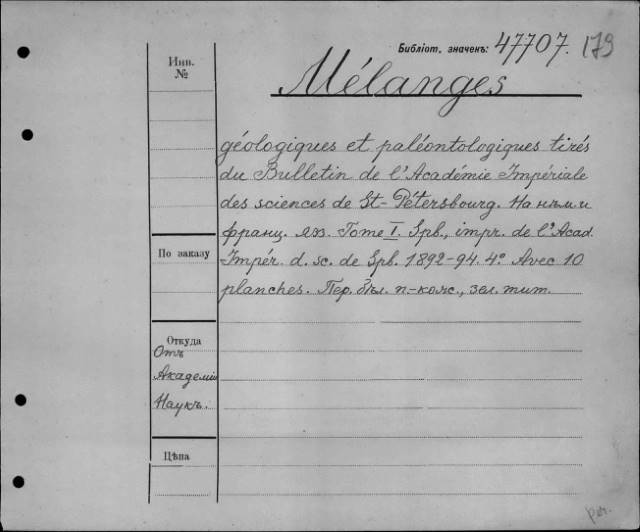 Библіот. значекъ: 47707. 179
Инв. №
Mélanges
géologiques et paléontologiques tirés
du Bulletin de l'Académie Impériale
des sciences de St-Pétersbourg. На нѣм. и
франц. яз. Tome I. Spb., impr. de l'Acad.
Impér. d. sc. de Spb. 1892-94. 4° Avec 10
planches. Пер. бѣл. п-кожс., зел. тит.
По заказу
Откуда
Отъ
Академіи
Наукъ.
Цѣна